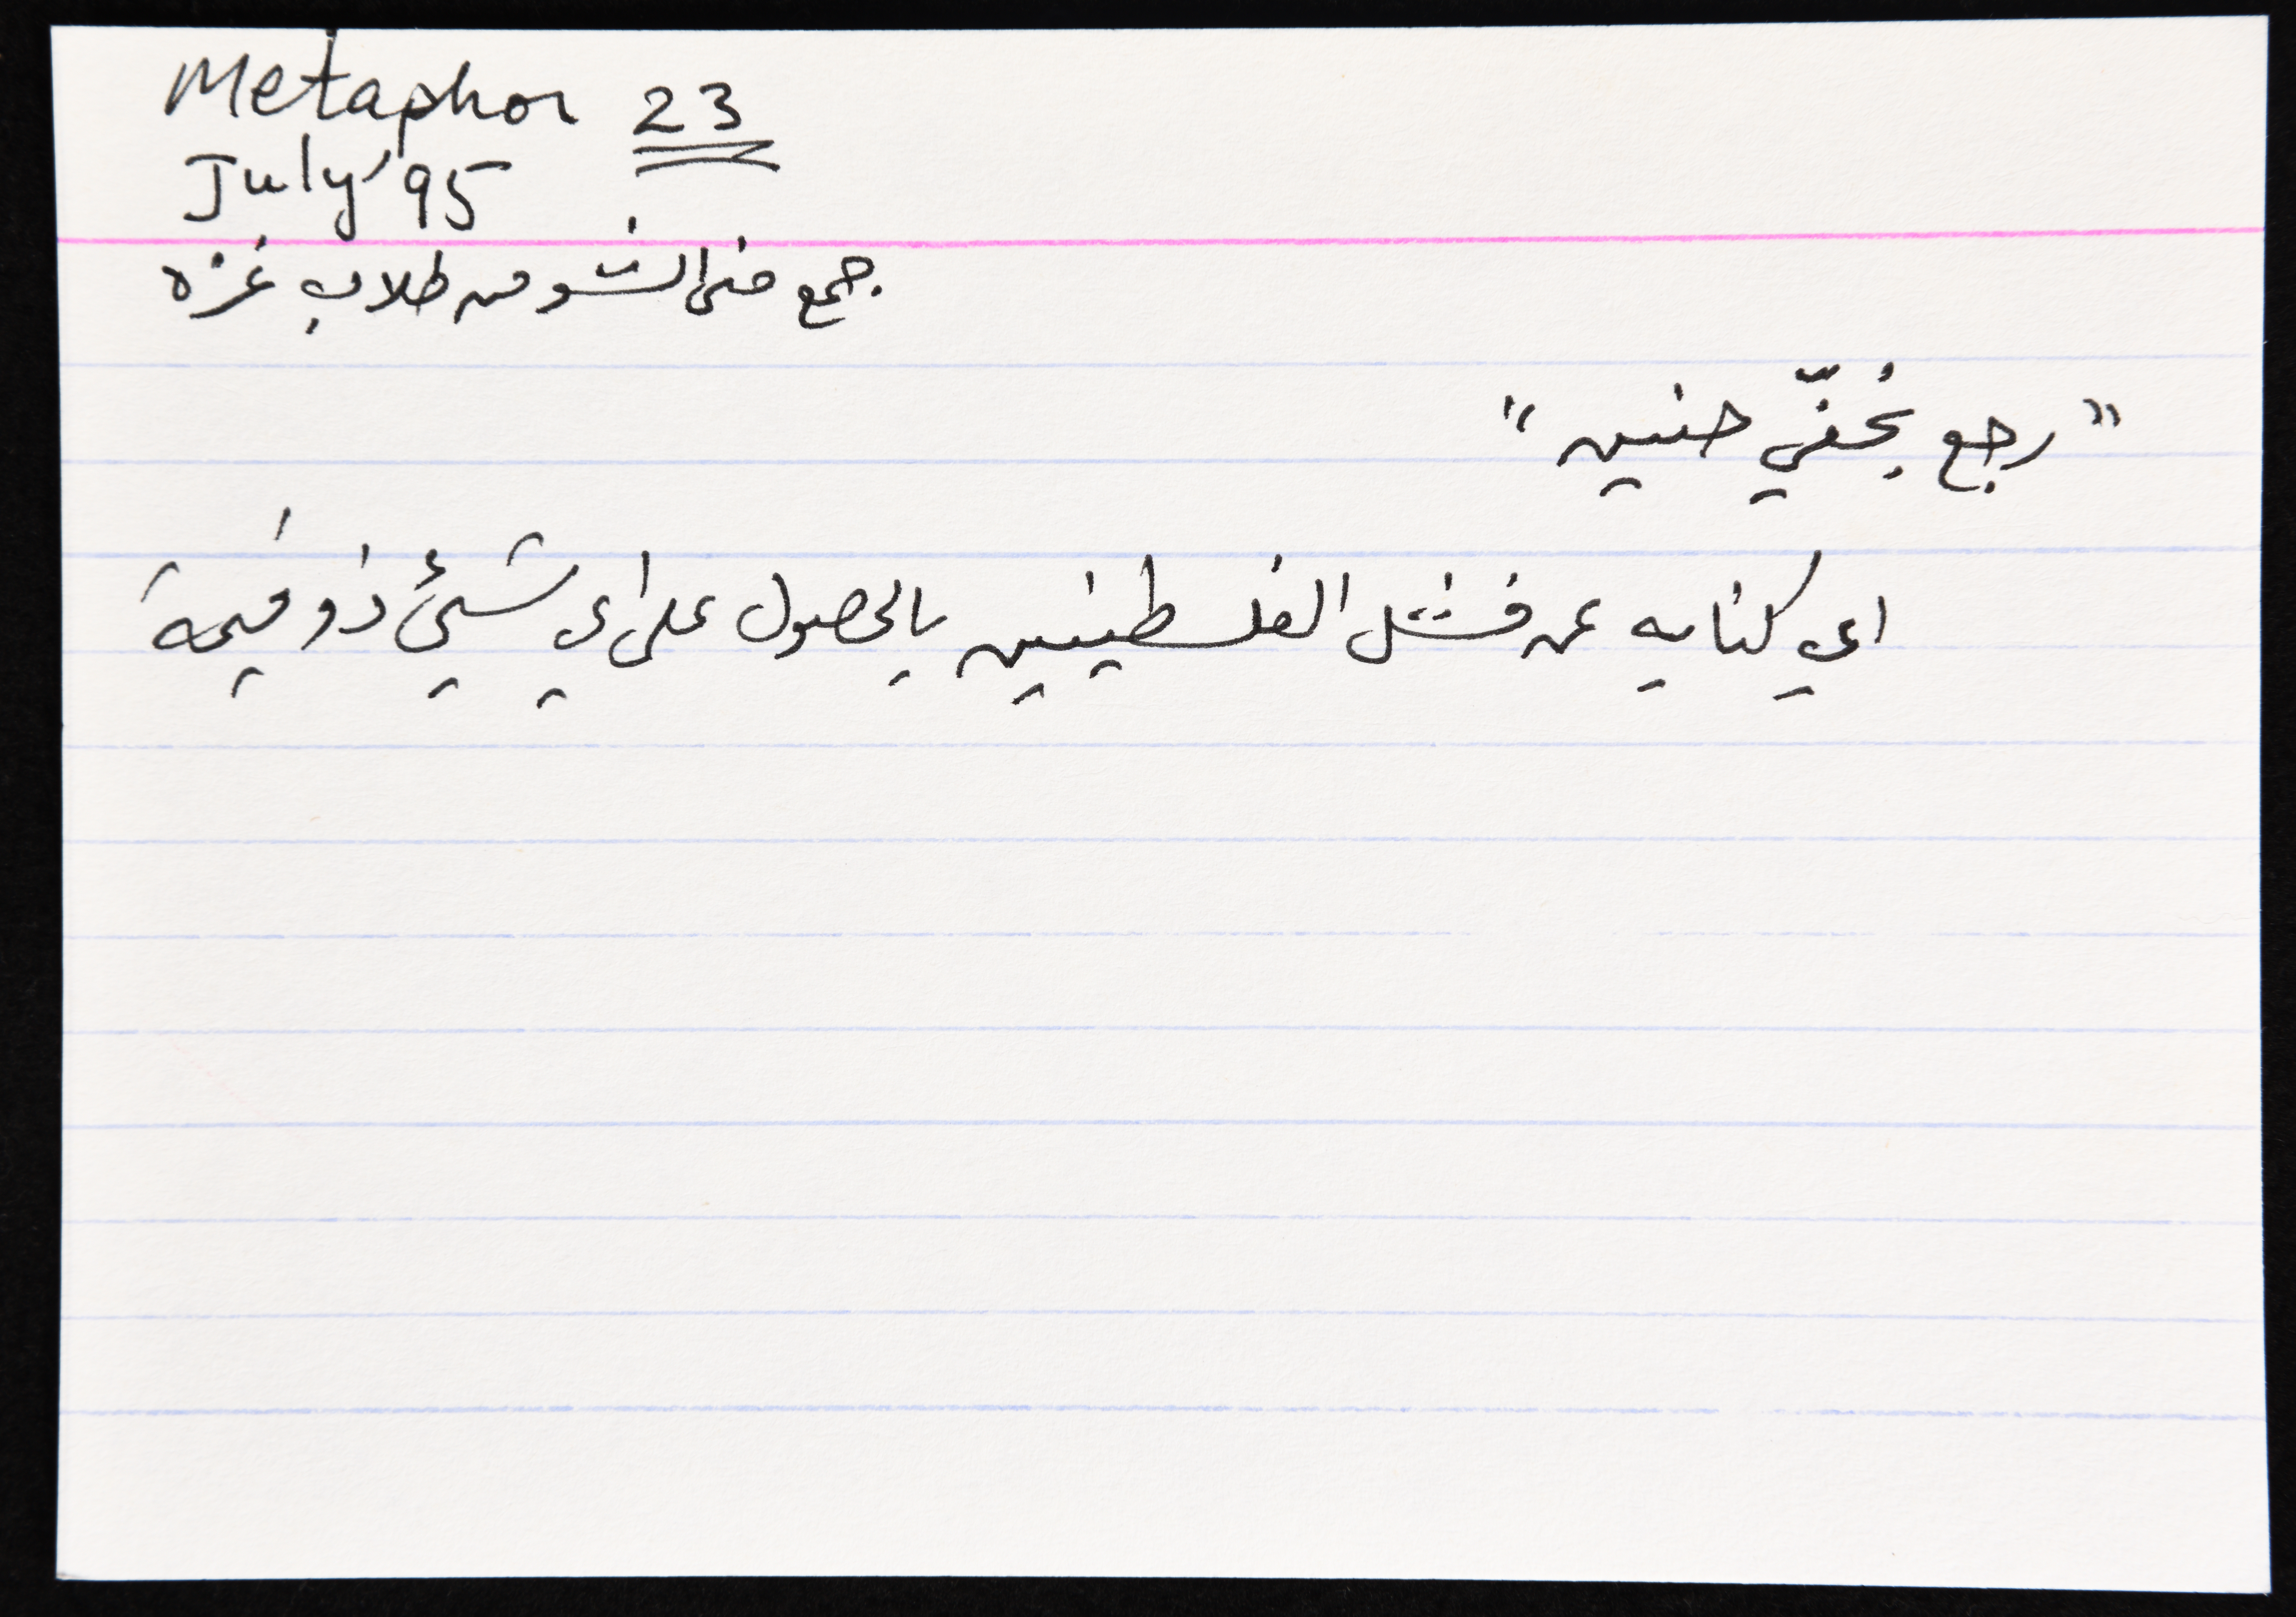 Metaphor 23
July '95
جمع منى النشو من طلاب غزه
"رجع بخفّي حنين"
اي كنايه عن فشل الفلسطينيين بالحصول على اي شيئ ذو قيمة